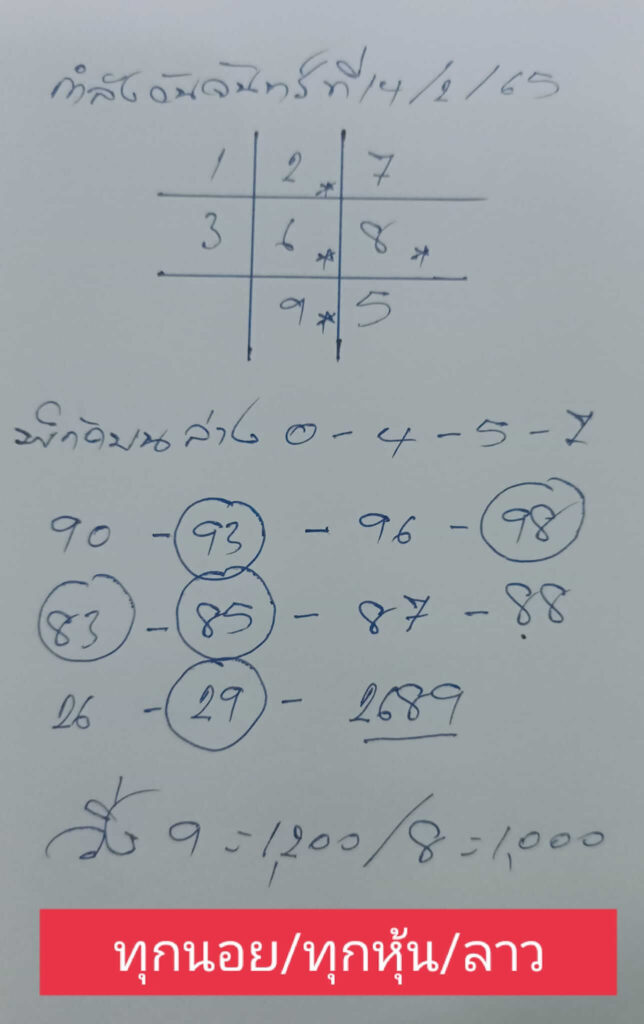 กำลังวันจันทร์ที่ 14/2/65
1 2* 7
3 6* 8*
9* 5
พิกัดบนล่าง 0-4-5-7
90-93-96-98
83-85-87-88
26-29-2689
วิ่ง 9=1,200/8=1,000
ทุกนอย/ทุกหุ้น/ลาว